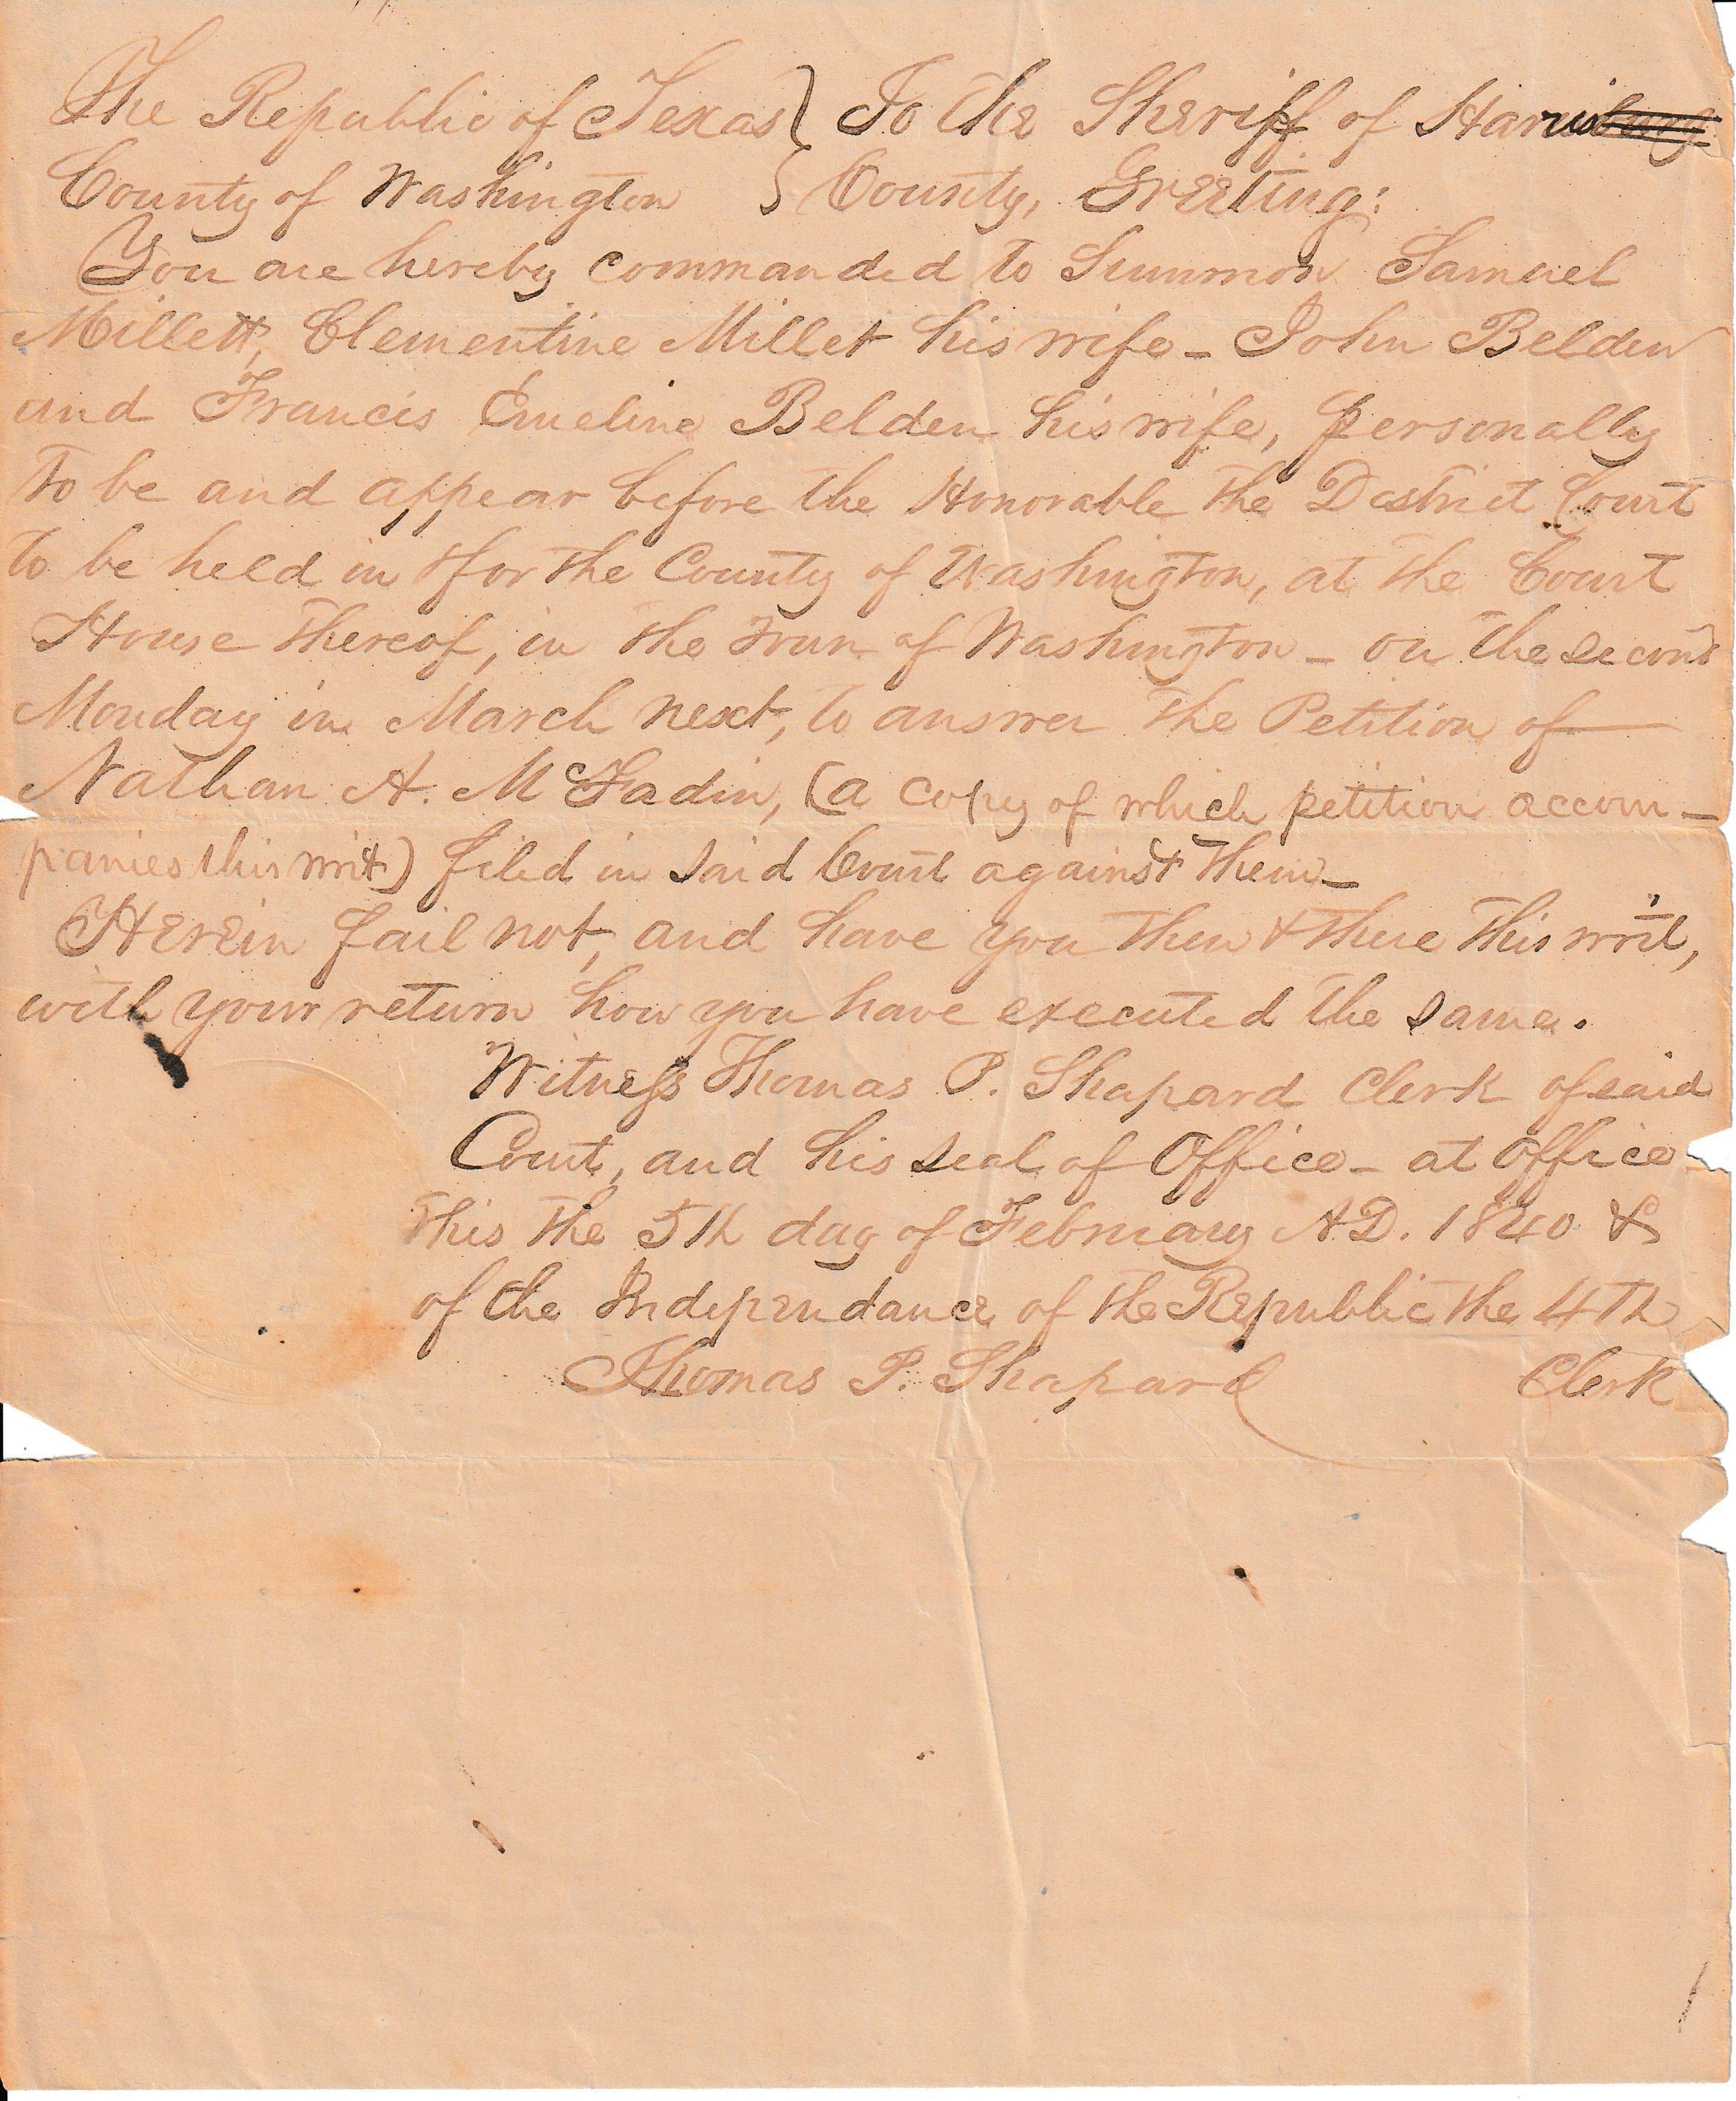 The Republic of Texas } To the Sheriff of Harris
County of Washington } County, Greeting:
You are hereby commanded to Summon Samuel
Millett, Clementine Millet his wife - John Belden
and Francis Emeline Belden his wife, personally
to be and appear before the Honorable the District Court
to be held in & for the County of Washington, at the Court
House thereof, in the Town of Washington - on the second
Monday in March next, to answer the Petition of
Nathan A. McFadin, (a copy of which petition accom-
panies this writ) filed in said Court against them -
Herein fail not, and have you then & there this writ,
with your return how you have executed the same.
Witness Thomas P. Shapard Clerk of said
Court, and his seal of Office - at office
this the 5th day of February A.D. 1840 &
of the Independance of the Republic the 4th
Thomas P. Shapard Clerk